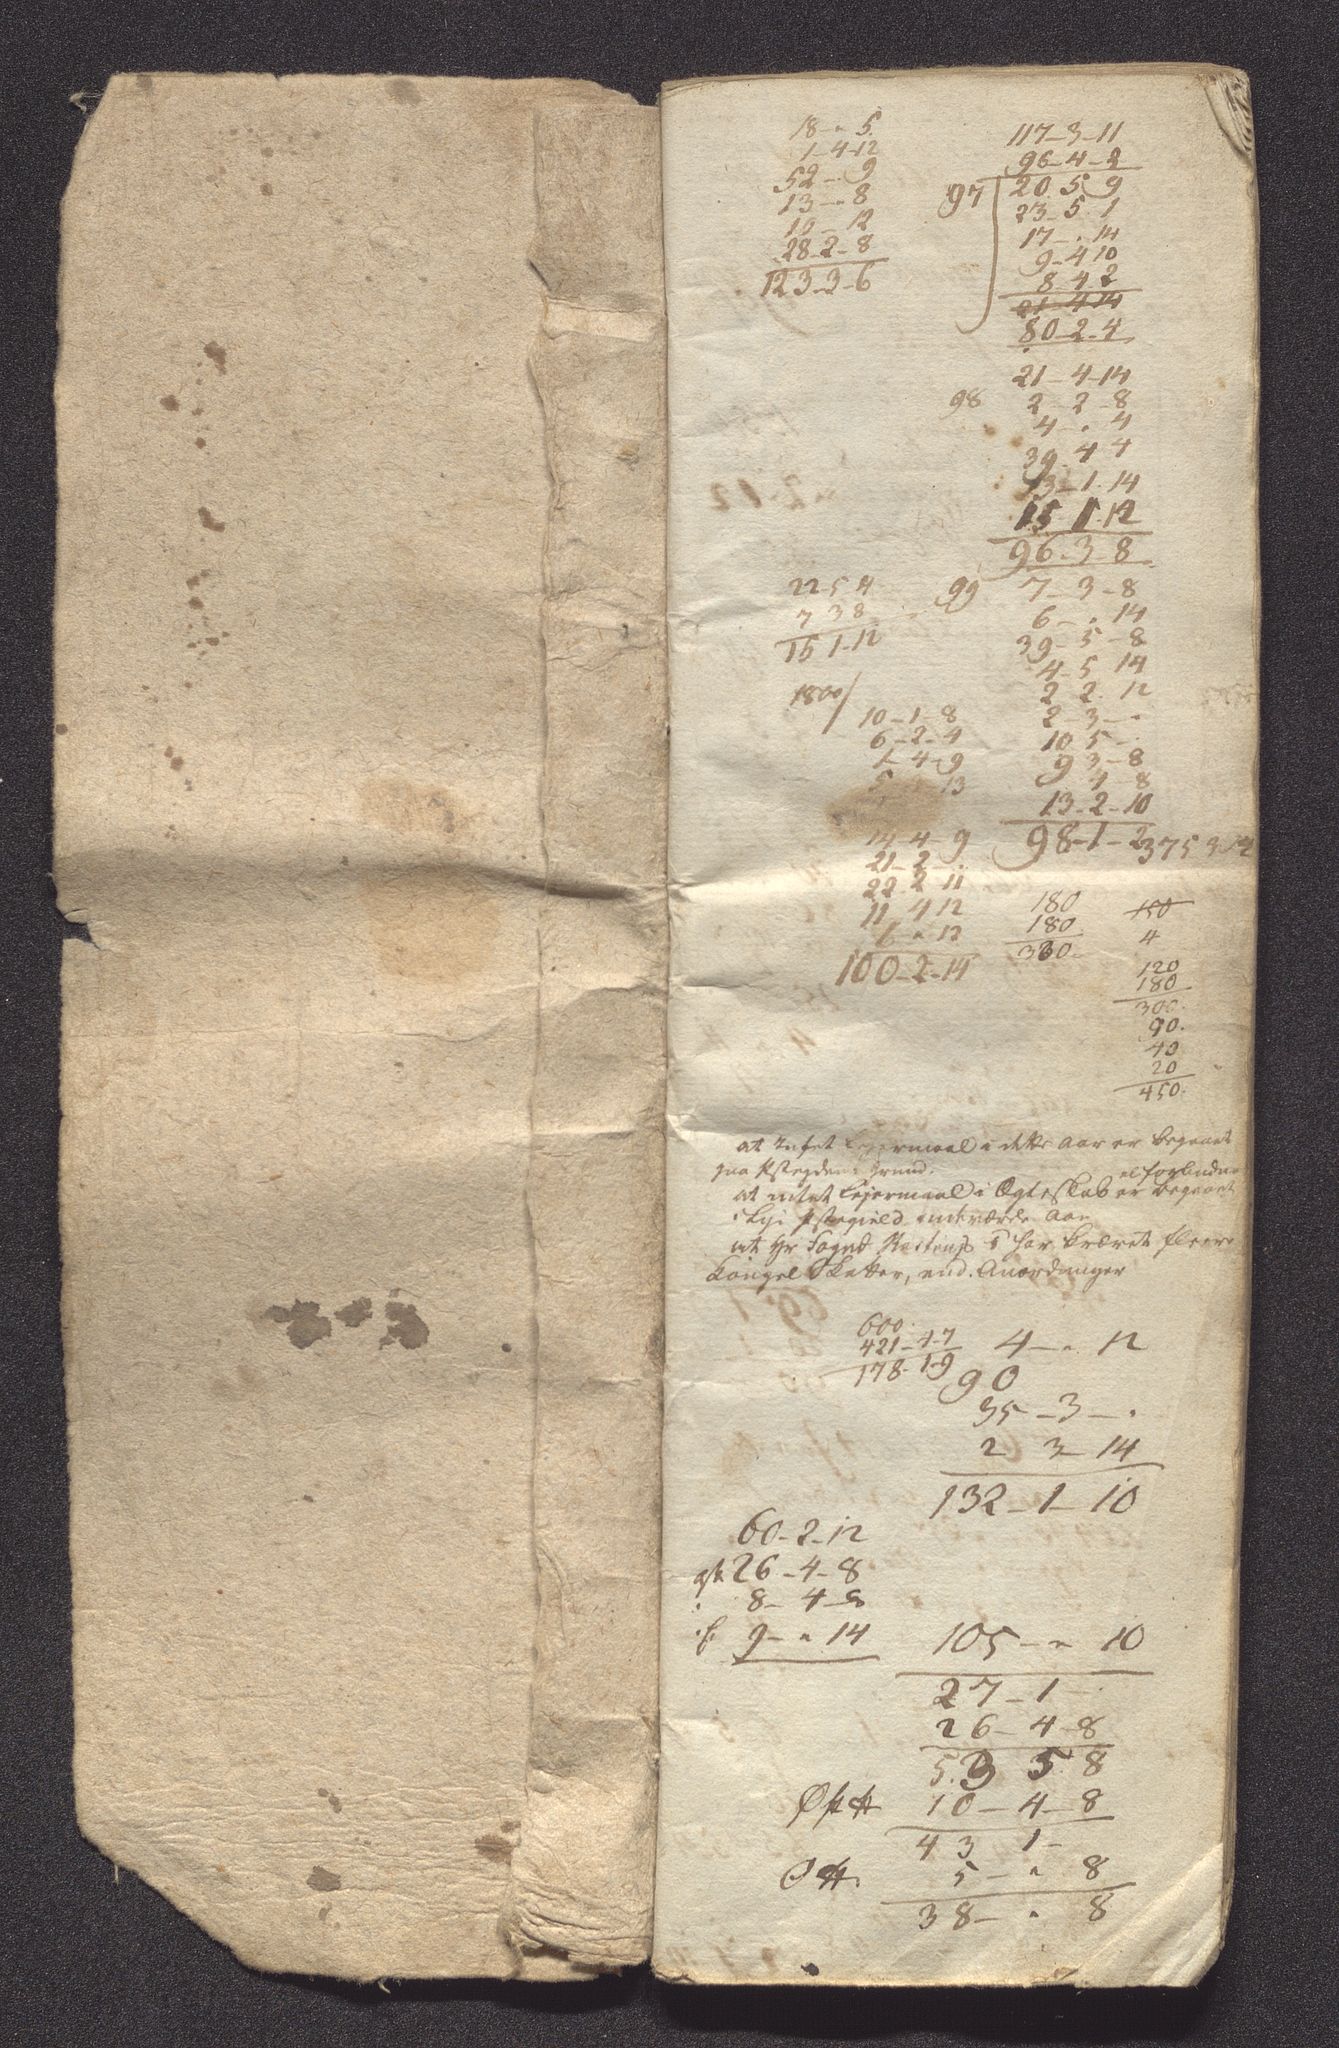 18 - " 5.
1 - 4 - 12
52 - . 9
13 - " 8
10 - 12
28 - 2 - 8
123 - 3 - 6
117 - 3 - 11
96 - 4 - 2
97 20. 5 9
23 - 5. 1
17 - . 14
9 - 4 10
8 4. 2
21 4 14
80 - 2 - 4
21 - 4 - 14
98 2 - 2 - 8
4 - . 4
39 - 4 4
13 - 1 - 14
15 1. 12
96 - 3 - 8
22 5 4
7 3 8
15 1 - 12
99 7 - 3 - 8
6 - . 14
39 - 5 - 8
4 - 5 14
2 2. 12
2 - 3 - .
10 5 - .
9 3 - 8
4 8
13 - 2 - 10
98 - 1 - 2
375 3 12
1800/
10 - 1 - 8
6 - 2 - 4
1 - 4 - 9
13
14 4 - 9
21 - 2 - .
22 2 11
11 4 12
" 13
100 - 2 - 14
180
180
360.
150
4
120
180
300.
90.
40
20
450.
at Intet Lejermaal i dette Aar er begaaet
paa grund.
el forbuden
at intet Lejermaal i Ægteskab er begaaet
i Aar
at Hr Foged har krævet fleere
Kongel Skatter, end Anordninger
600.
421 - 4 - 7
178 - 1 - 9
4 - " 12
90
35 - 3 - .
2 3 - 14
132 - 1 - 10
60 - 2 - 12
26 - 4 - 8
8 - 4 - 8
9 - " 14
105 - " 10
27 - 1 -
26 - 4 - 8
53 5 8
10 - 4 - 8
43 1 -
5 - " 8
38 - " 8